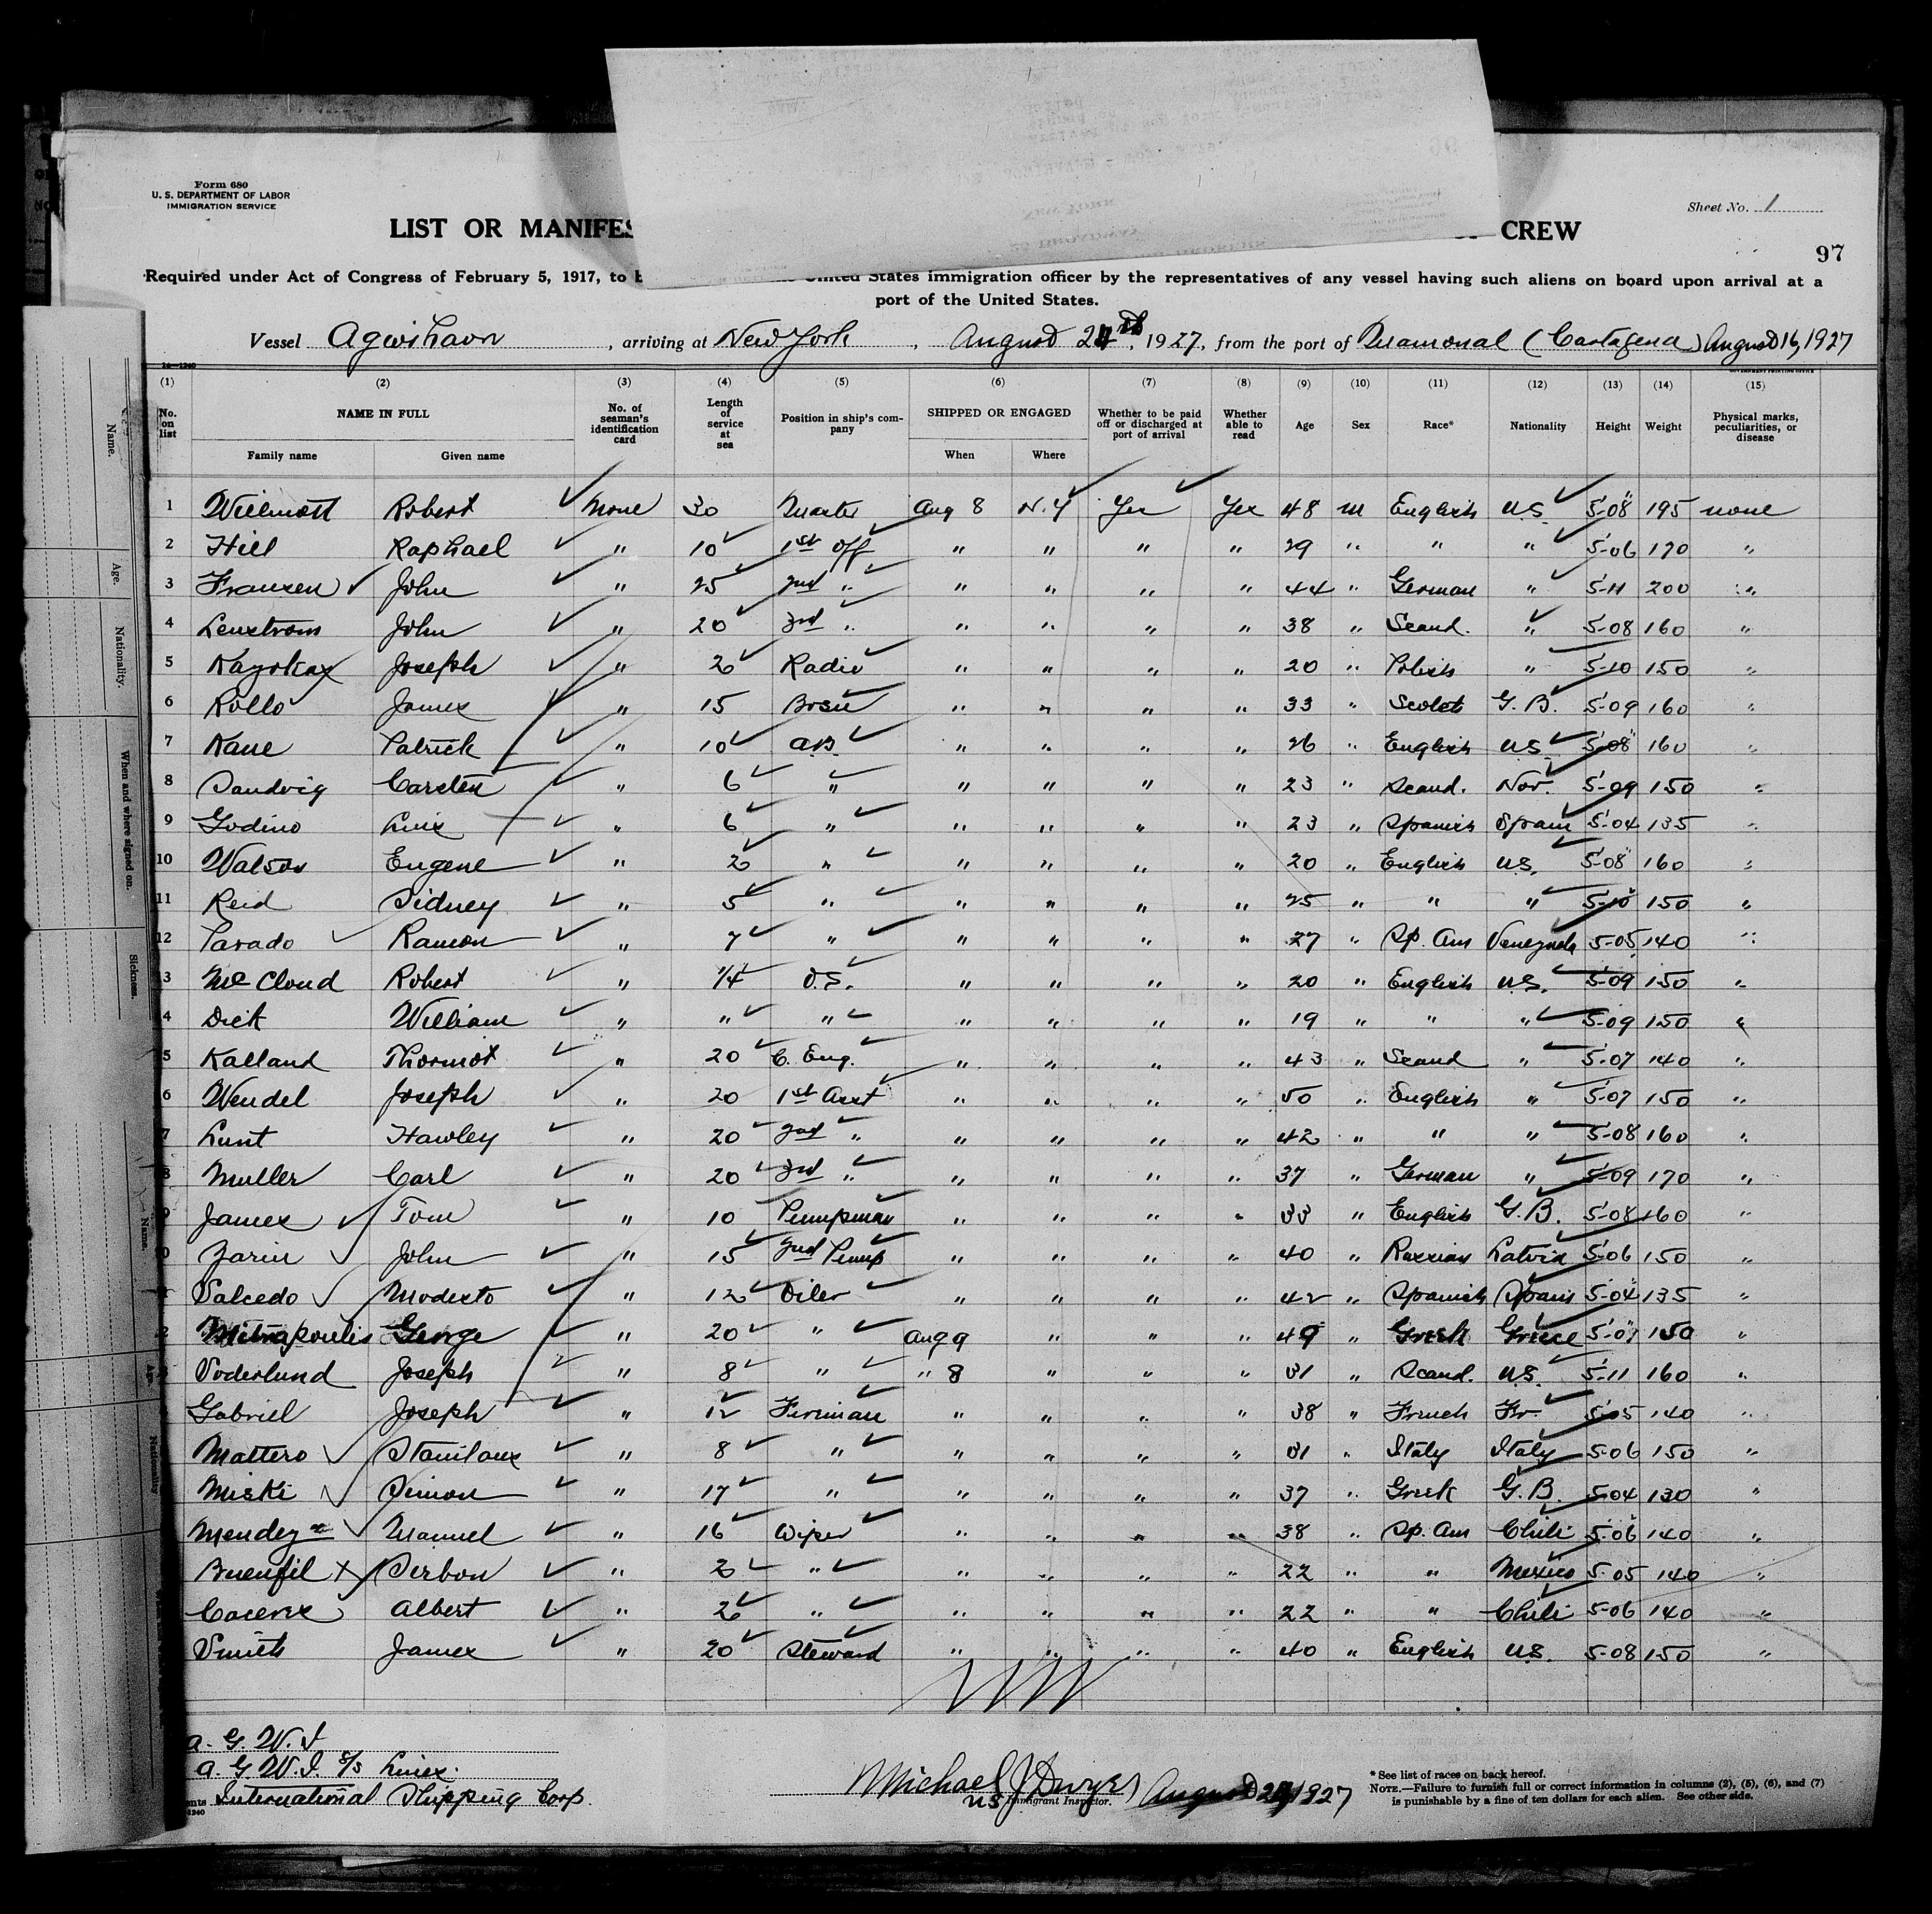 Form 680
U. S. DEPARTMENT OF LABOR
IMMIGRATION SERVICE
Sheet No. 1
LIST OR MANIFES CREW
97
Required under Act of Congress of February 5, 1917, to b United States immigration officer by the representatives of any vessel having such aliens on board upon arrival at a
port of the United States.
Vessel Agwihavn, arriving at New York, August 24th, 1927, from the port of Mamonal (Cartagena) August 16, 1927
(1) (2) (3) (4) (5) (6) (7) (8) (9) (10) (11) (12) (13) (14) (15)
No. on list NAME IN FULL No. of seaman's identification card Length of service at sea Position in ship's company SHIPPED OR ENGAGED Whether to be paid off or discharged at port of arrival Whether able to read Age Sex Race* Nationality Height Weight Physical marks, peculiarities, or disease
Family name Given name When Where
1 Willmott Robert None 30 Master Aug 8 N.Y Yes Yes 48 M English U.S. 5'-08" 195 none
2 Hill Raphael " 10 1st Off " " " " 29 " " " 5-06 170 "
3 Fransen John " 25 2nd " " " " " 44 " German " 5-11 200 "
4 Lenstrom John " 20 3rd " " " " " 38 " Scand. " 5-08 160 "
5 Joseph " 2 Radio " " " " 20 " Polish " 5-10 150 "
6 Rollo James " 15 Bosn " " " " 33 " Scotch G.B. 5-09 160 "
7 Kane Patrick " 10 A.B. " " " " 26 " English U.S. 5-08 160 "
8 Sandvig Carsten " 6 " " " " " 23 " Scand. Nor. 5-09 150 "
9 Godino Luis " 6 " " " " " 23 " Spanish Spain 5-04 135 "
10 Watson Eugene " 2 " " " " " 20 " English U.S. 5-08 160 "
11 Reid Sidney " 5 " " " " " 25 " " " 5-10 150 "
12 Parado Ramon " 7 " " " " " 27 " Sp. Am Venezuela 5-05 140 "
3 McCloud Robert " 1/4 O.S. " " " " 20 " English U.S. 5-09 150 "
4 Dick William " " " " " " " 19 " " " 5-09 150 "
5 Kalland Thormot " 20 C. Eng. " " " " 43 " Scand " 5-07 140 "
6 Wendel Joseph " 20 1st Asst " " " " 50 " English " 5-07 150 "
7 Lunt Hawley " 20 2nd " " " " " 42 " " " 5-08 160 "
8 Muller Carl " 20 3rd " " " " " 37 " German " 5-09 170 "
9 James Tom " 10 Pumpman " " " " 33 " English G.B. 5-08 160 "
0 Zarin John " 15 2nd Pump " " " " 40 " Russian Latvia 5-06 150 "
Salcedo Modesto " 12 Oiler " " " " 42 " Spanish Spain 5-04 135 "
2 Mitrapoulis George " 20 " Aug 9 " " " 49 " Greek Greece 5-07 150 "
Soderlund Joseph " 8 " " 8 " " " 31 " Scand. U.S. 5-11 160 "
Gabriel Joseph " 12 Fireman " " " " 38 " French Fr. 5-05 140 "
Mattero Stanilaus " 8 " " " " " 31 " Italy Italy 5-06 150 "
Miski Simon " 17 " " " " " 37 " Greek G.B. 5-04 130 "
Mendez Manuel " 16 Wiper " " " " 38 " Sp. Am Chili 5-06 140 "
Buenfil Serbon " 2 " " " " " 22 " " Mexico 5-05 140 "
Caceres Albert " 2 " " " " " 22 " " Chili 5-06 140 "
Smith James " 20 Steward " " " " 40 " English U.S. 5-08 150 "
A. G. W. I
A. G W. I. S/S Lines.
International Shipping Corp.
Michael J Dwyer August 24, 1927
US Immigrant Inspector.
* See list of races on back hereof.
NOTE.—Failure to furnish full or correct information in columns (2), (5), (6), and (7)
is punishable by a fine of ten dollars for each alien. See other side.
Name.
Age.
Nationality.
When and where signed on.
Sickness.
Name.
Age.
Nationality